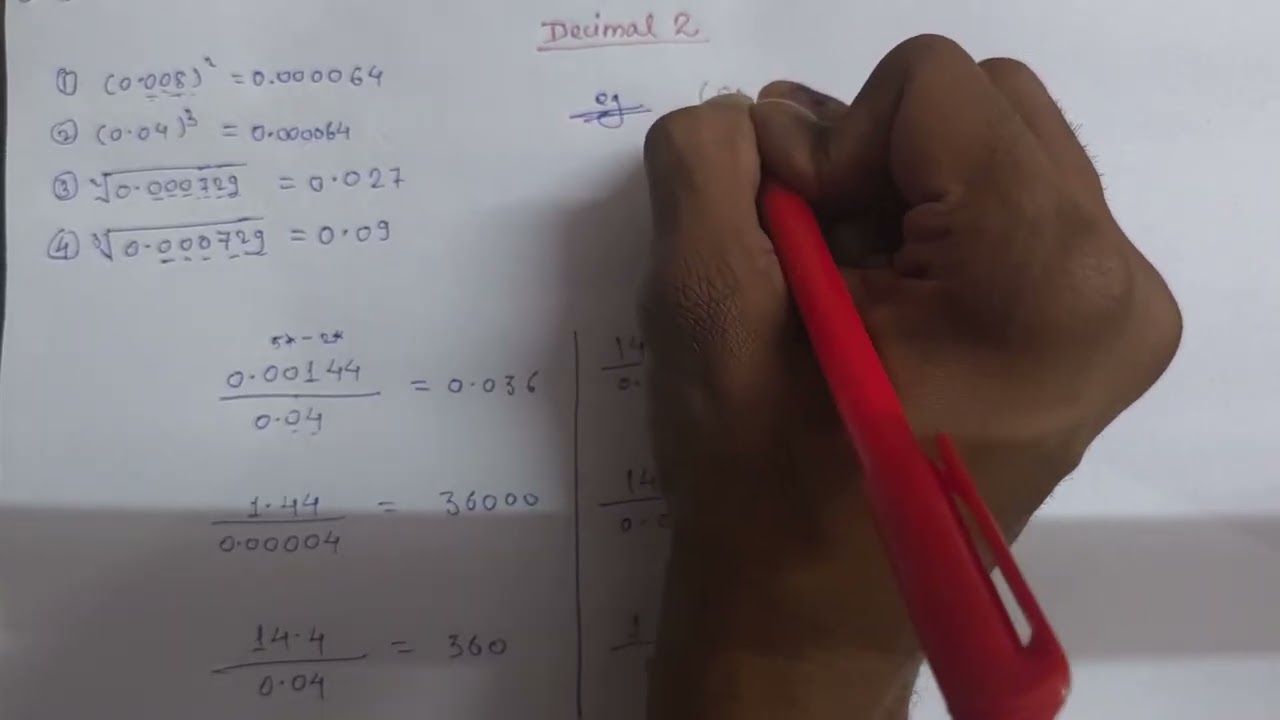 Decimal 2
① (0.008)² = 0.000064
② (0.04)³ = 0.000064
③ √0.000729 = 0.027
④ ∛0.000729 = 0.09
eg
5* - 2*
0.00144
0.04
= 0.036
1.44
0.00004
= 36000
14.4
0.04
= 360
14
0.
14
0.
1